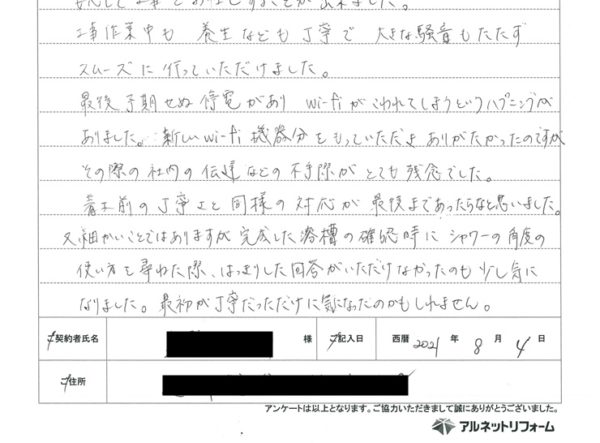 安心して工事をお任せすることが出来ました。
工事作業中も 養生なども丁寧で 大きな騒音もたたず
スムーズに行っていただけました。
最後予期せぬ停電があり wi-fiがこわれてしまうというハプニングが
ありました。新しいwi-fi機器分をもっていただきありがたかったのですが
その際の社内の伝達などの不手際がとても残念でした。
着工前の丁寧さと同様の対応が最後まであったらなと思いました。
又、細かいことではありますが完成した浴槽の確認時にシャワーの角度の
使い方を尋ねた際、はっきりした回答がいただけなかったのも少し気に
なりました。最初が丁寧だっただけに気になったのかもしれません。
ご契約者氏名 様 ご記入日 西暦 2021 年 8 月 4 日
ご住所
アンケートは以上となります。ご協力いただきまして誠にありがとうございました。
アルネットリフォーム